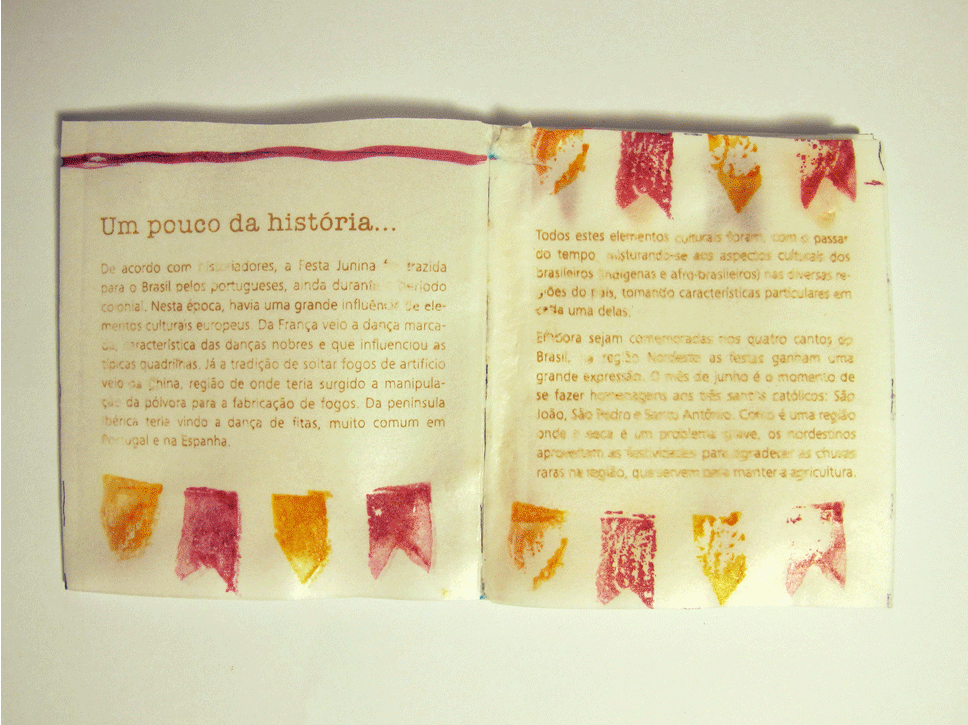 Um pouco da história...
De acordo com historiadores, a Festa Junina foi trazida
para o Brasil pelos portugueses, ainda durante o período
colonial. Nesta época, havia uma grande influência de ele-
mentos culturais europeus. Da França veio a dança marca-
da, característica das danças nobres e que influenciou as
típicas quadrilhas. Já a tradição de soltar fogos de artifício
veio da China, região de onde teria surgido a manipula-
ção da pólvora para a fabricação de fogos. Da península
Ibérica teria vindo a dança de fitas, muito comum em
Portugal e na Espanha.
Todos estes elementos culturais foram, com o passar
do tempo, misturando-se aos aspectos culturais dos
brasileiros (indígenas e afro-brasileiros) nas diversas re-
giões do país, tomando características particulares em
cada uma delas.
Embora sejam comemoradas nos quatro cantos do
Brasil, na região Nordeste as festas ganham uma
grande expressão. O mês de junho é o momento de
se fazer homenagens aos três santos católicos: São
João, São Pedro e Santo Antônio. Como é uma região
onde a seca é um problema grave, os nordestinos
aproveitam as festividades para agradecer as chuvas
raras na região, que servem para manter a agricultura.